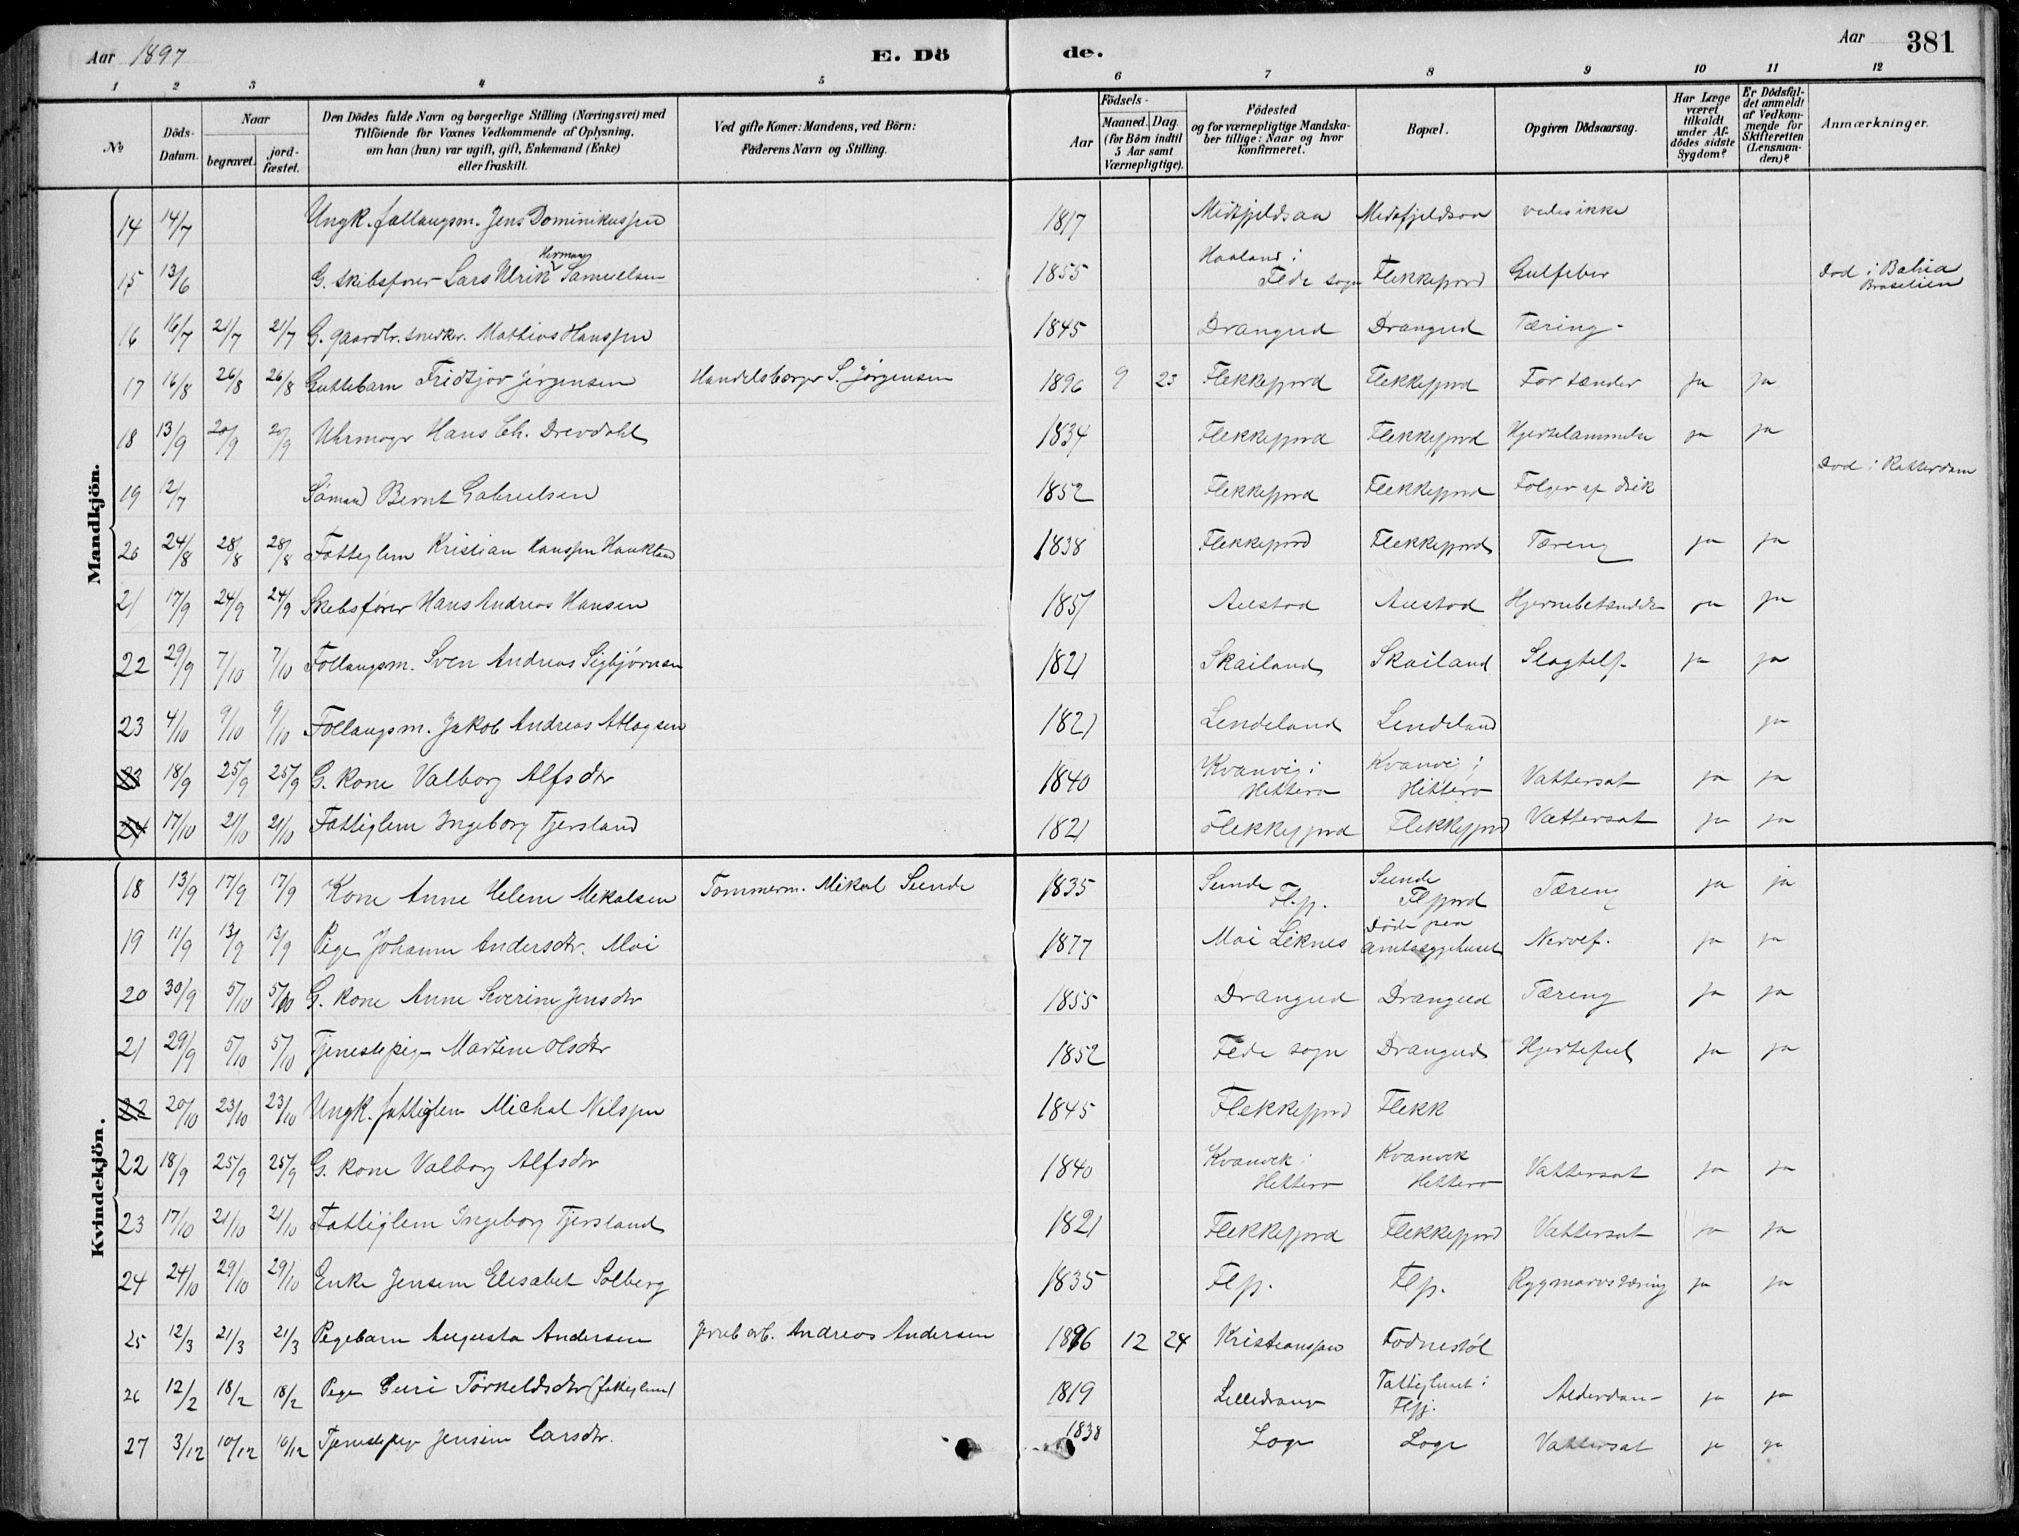 Aar 1897 E. Dö de. Aar 381
1 2 3 4 5 6 7 8 9 10 11 12
No
Döds-Datum.
Naar
begravet.
jord-fæstet.
Den Dödes fulde Navn og borgerlige Stilling (Næringsvei) med
Tilföiende for Voxnes Vedkommende af Oplysning,
om han (hun) var ugift, gift, Enkemand (Enke)
eller fraskilt.
Ved gifte Koner: Mandens, ved Börn:
Faderens Navn og Stilling.
Födsels-
Aar
Maaned. Dag
(for Börn indtil
5 Aar samt
Værnepligtige).
Födested
og for værnepligtige Mandska-
ber tillige: Naar og hvor
konfirmeret.
Bopæl.
Opgiven Dödsaarsag.
Har Læge
været
tilkaldt
under Af-
dödes sidste
Sygdom?
Er Dödsfal-
det anmeldt
af Vedkom-
mende for
Skifteretten
(Lensman-
den)?
Anmærkninger.
Mandkjön.
14 14/7 Ungk. follaugsm. Jens Dominikussen 1817 Midtfjeldsaa Midtfjeldsaa vides ikke
15 13/6 G. skibsfører Lars Ulrik Herman Samuelsen 1855 Haaland i Fede sogn Flekkefjord Gulfeber Død i Bahia Brasilien
16 16/7 21/7 21/7 G. gaardbr. snedker. Mathias Hanssen 1845 Drangeid Drangeid Tæring
17 16/8 26/8 26/8 Guttebarn Fridtjov Jørgensen Handelsborger S. Jørgensen 1896 9 23 Flekkefjord Flekkefjord For tænder ja ja
18 13/9 20/9 20/9 Uhrmager Hans Ch. Drevdahl 1834 Flekkefjord Flekkefjord Hjertelammelse ja ja
19 12/7 Sømand Bernt Gabrielsen 1852 Flekkefjord Flekkefjord Følger af drik Død i Rotterdam
20 24/8 28/8 28/8 Fattiglem Kristian Hanssen Haukland 1838 Flekkefjord Flekkefjord Tæring ja ja
21 17/9 24/9 24/9 Skibsfører Hans Andreas Hansen 1857 Austad Austad Hjernebetændelse ja ja
22 29/9 7/10 7/10 Follaugsm. Sven Andreas Sigbjørnsen 1821 Skailand Skailand Slagtilf. ja ja
23 4/10 9/10 9/10 Follaugsm. Jakob Andreas Atlagsen 1821 Lendeland Lendeland ja
23 18/9 25/9 25/9 G. kone Valborg Alfsdtr 1840 Kvanvig i Hitterø Kvanvi i Hitterø Vattersot ja ja
24 17/10 21/10 21/10 Fattiglem Ingeborg Tjersland 1821 Flekkefjord Flekkefjord Vattersot ja ja
Kvindekjön.
18 13/9 17/9 17/9 Kone Anne Helene Mikalsen Tømmerm. Mikal Sunde 1835 Sunde Flfj. Sunde Flfjord Tæring ja ja
19 11/9 13/9 13/9 Pige Johanne Andersdtr. Moi 1877 Moi Liknes Døde paa Amtssygehuset Nervef. ja ja
20 30/9 5/10 5/10 G. kone Anne Severine Jensdtr 1855 Drangeid Drangeid Tæring ja ja
21 29/9 5/10 5/10 Tjenestepige Martine Olsdtr 1852 Fede sogn Drangeid Hjertefeil ja ja
22 20/10 23/10 23/10 Ungk. fattiglem Michal Nilssen 1845 Flekkefjord Flekk
22 18/9 25/9 25/9 G. kone Valborg Alfsdtr 1840 Kvanvik i Hitterø Kvanvik Hitterø Vattersot ja ja
23 17/10 21/10 21/10 Fattiglem Ingeborg Tjersland 1821 Flekkefjord Flekkefjord Vattersot ja ja
24 24/10 29/10 29/10 Enke Jensine Elisabet Solberg 1835 Flfj. Flfj. Rygmarvstæring ja ja
25 12/3 21/3 21/3 Pigebarn Augusta Andersen Andreas Andersen 1896 12 24 Kristianssan Fodnestøl
26 12/2 18/2 18/2 Pige Guri Torkeldsdtr (fattiglem) 1819 Lilledrange Fattighuset i Flfj. Alderdom ja ja
27 3/12 10/12 10/12 Tjenestepige Jensine Larsdtr. 1838 Loge Loge Vattersot ja ja